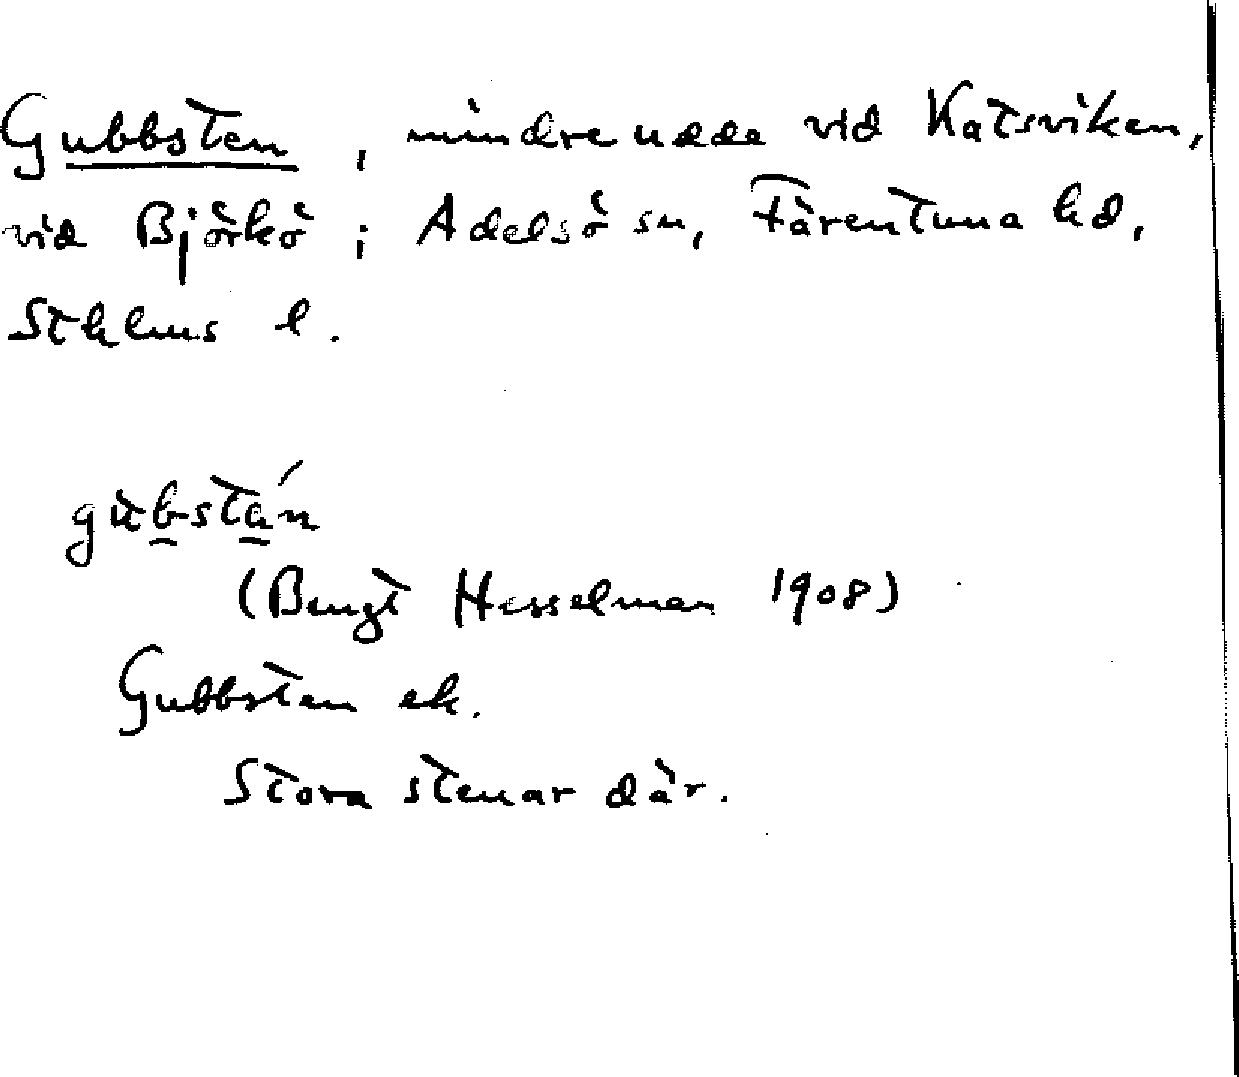 Gubbsten, mindre udde vid Katsviken,
vid Björkö i Adelsö sn, Färentuna hd,
Sthlms l.
gubstán
(Bengt Hesselman 1908)
Gubbsten ek.
Stora stenar där.